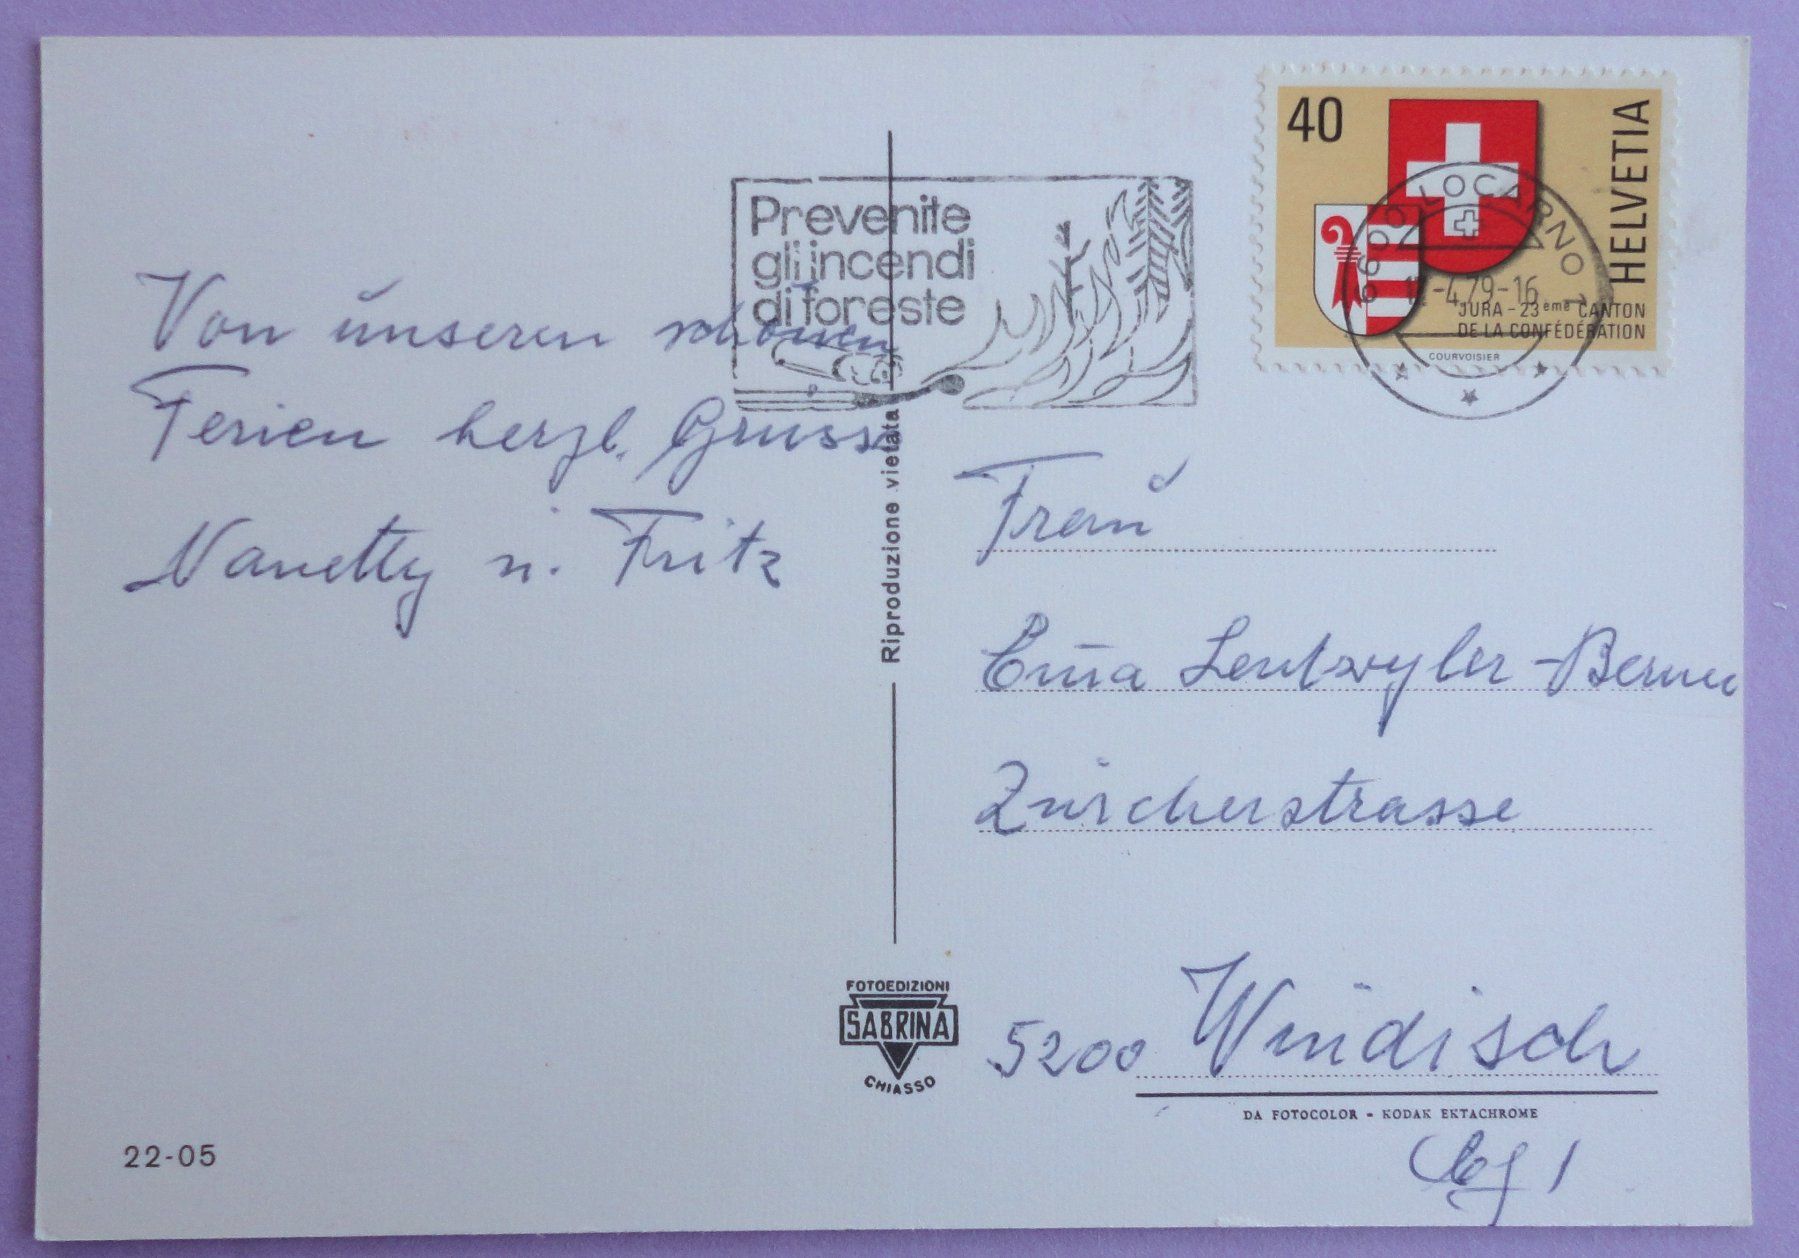 Von unseren schönen
Ferien herzl. Gruss
Nanetty u. Fritz
Prevenite
gli incendi
di foreste
40
HELVETIA
JURA - 23ème CANTON
DE LA CONFÉDÉRATION
COURVOISIER
6600 LOCARNO 1
-4.79-16
Riproduzione vietata
Frau
Leutwyler-
Zürcherstrasse
5200 Windisch
DA FOTOCOLOR - KODAK EKTACHROME
FOTOEDIZIONI
SABRINA
CHIASSO
22-05